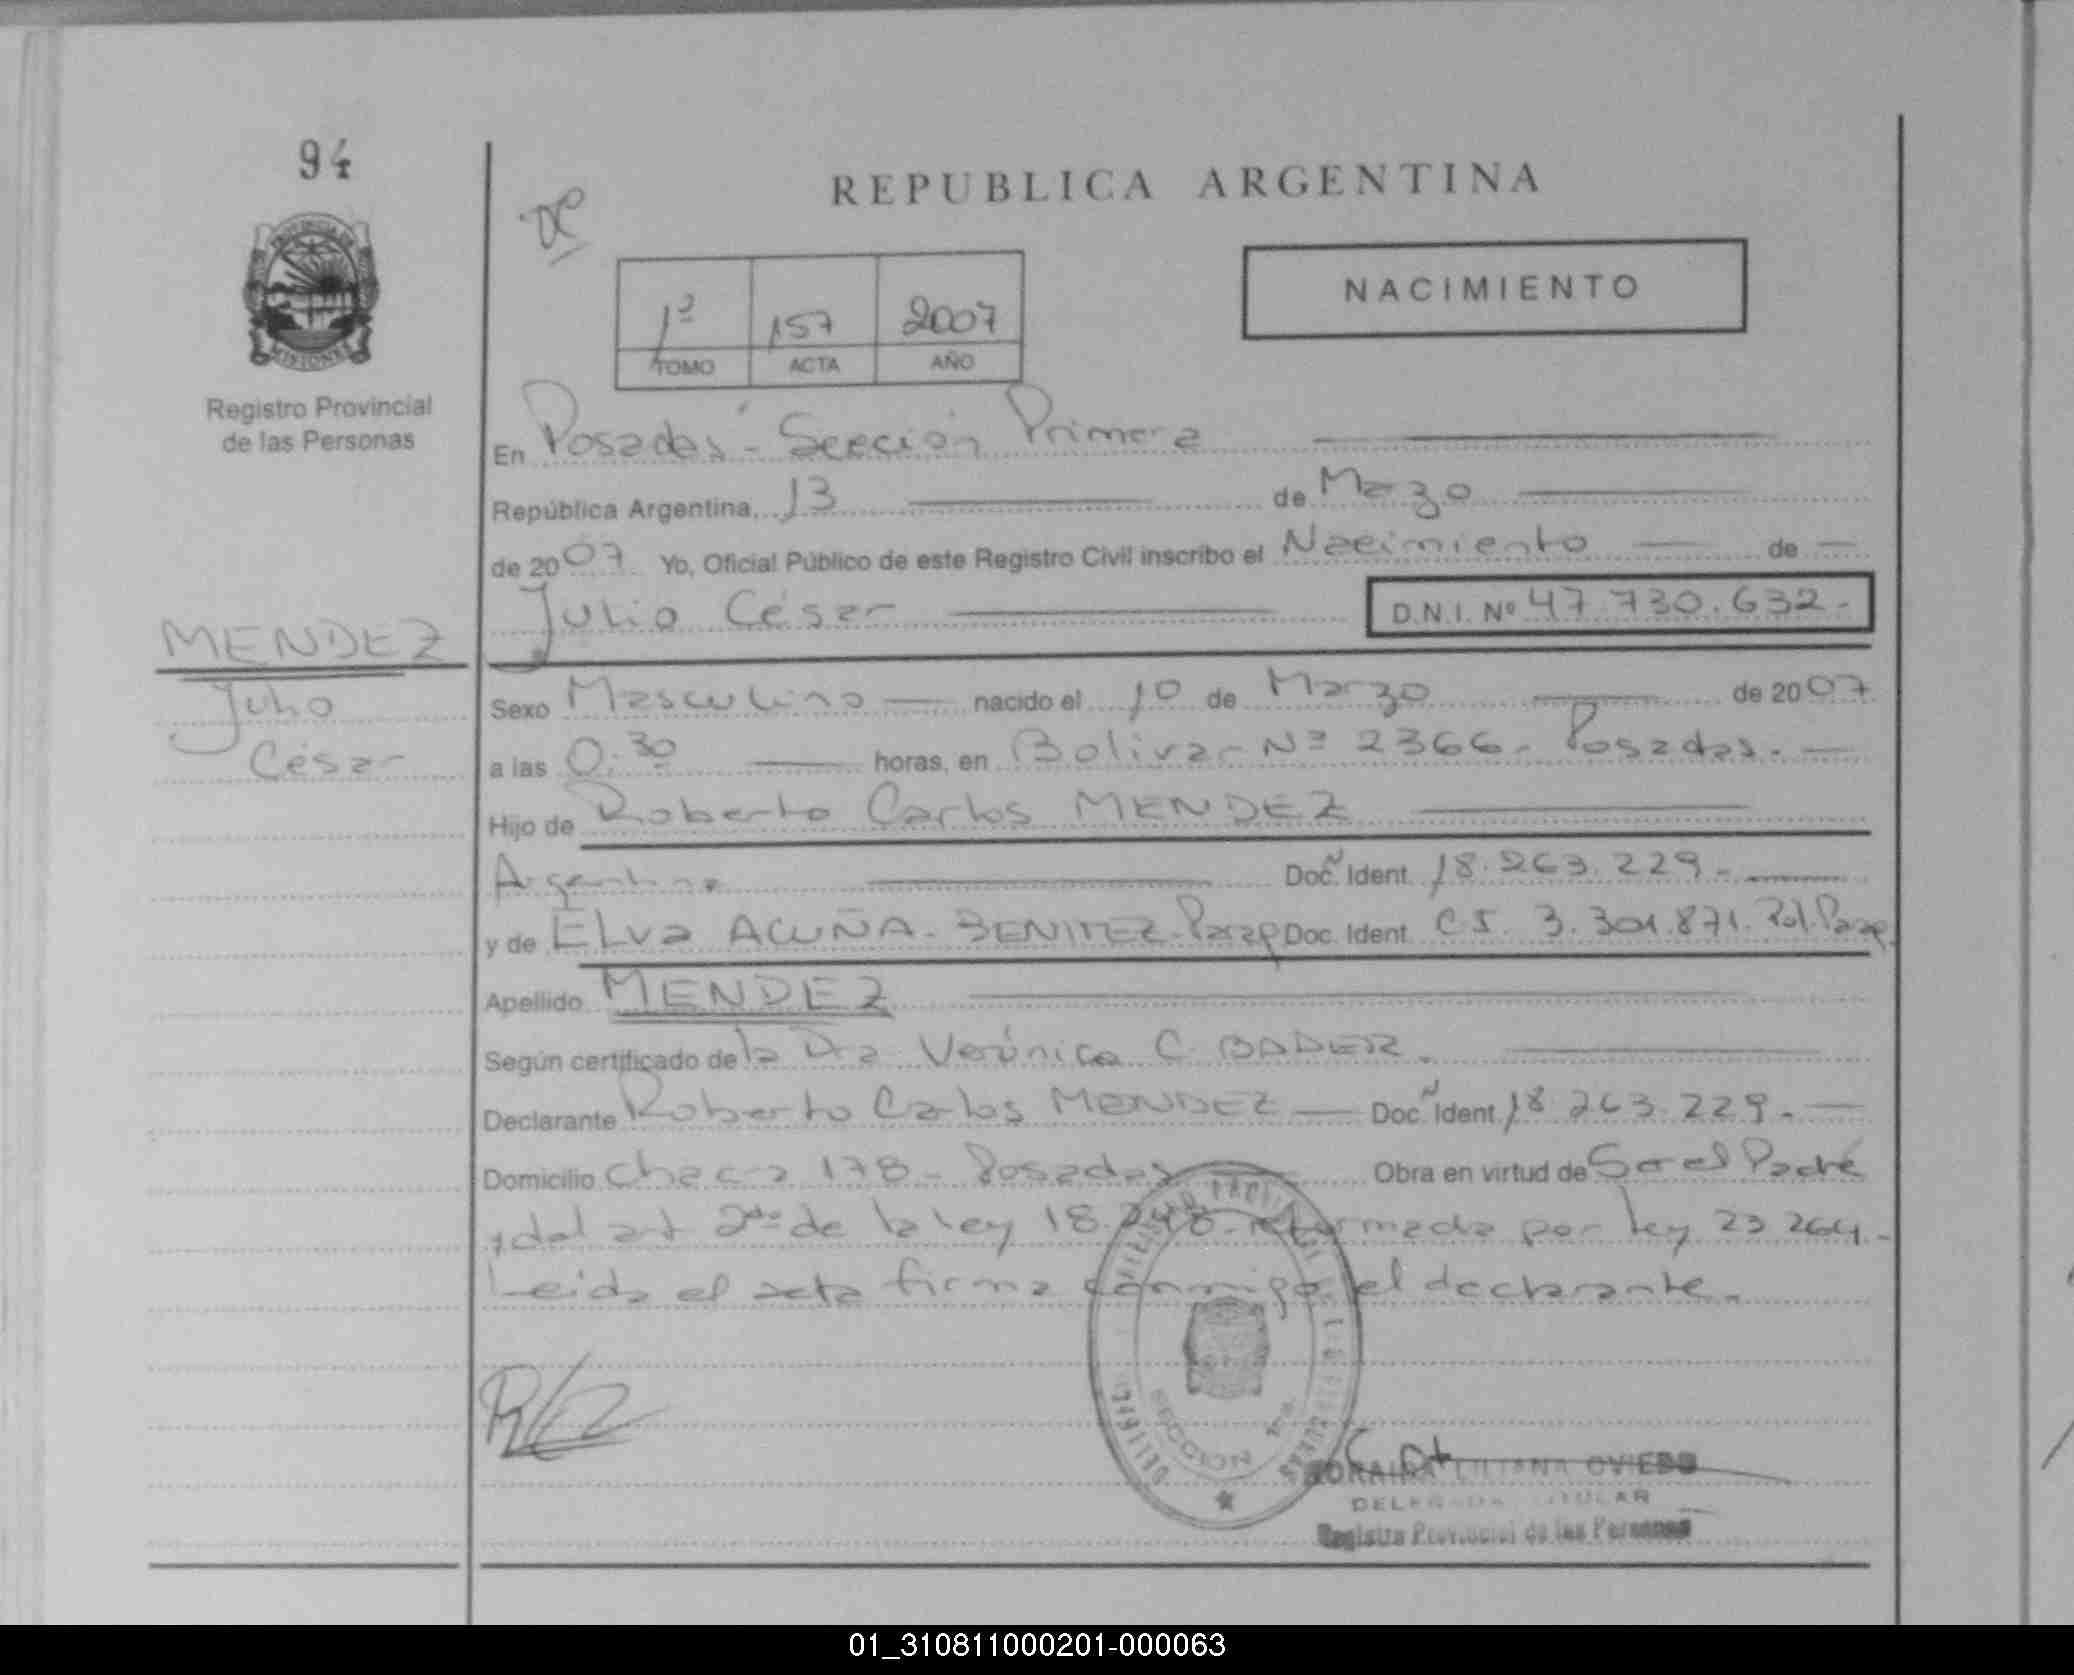 94
REPUBLICA ARGENTINA
PROVINCIA DE
MISIONES
Registro Provincial
de las Personas
NACIMIENTO
1º 157 2007
TOMO ACTA AÑO
En Posadas - Sección Primera
República Argentina, 13 de Marzo
de 2007 Yo, Oficial Público de este Registro Civil inscribo el Nacimiento de
Julio César D.N.I. Nº 47.730.632.-
MENDEZ
Julio
César
Sexo Masculino nacido el 10 de Marzo de 2007
a las 0.30 horas, en Bolivar Nº 2366. Posadas.
Hijo de Roberto Carlos MENDEZ
Argentino Doc. Ident. 18.263.229.-
y de Elva ACUÑA - BENITEZ - Parag Doc. Ident. C.I. 3.301.871. Pol. Parag.
Apellido MENDEZ
Según certificado de la Dra Verónica C. BADER.
Declarante Roberto Carlos MENDEZ Doc. Ident. 18.263.229.-
Domicilio Chacra 178 - Posadas Obra en virtud de Ser el Padre
y del art 2do de la ley 18.248 reformada por ley 23.264.-
Leida el acta firma conmigo el declarante.
SECCION 1ra
LILIANA OVIEDO
DELEGADA TITULAR
Registro Provincial de las Personas
01_310811000201-000063